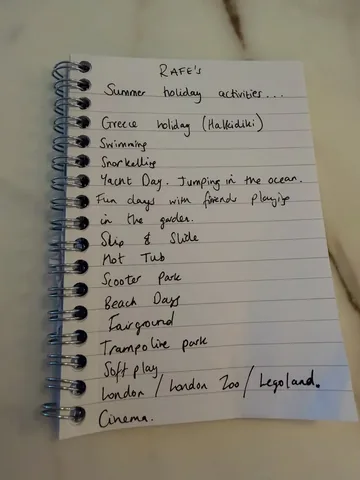 RAFE's
Summer holiday activities...
Greece holiday (Halkidiki)
Swimming
Snorkelling
Yacht Day. Jumping in the ocean.
Fun days with friends playing
in the garden.
Slip & Slide
Hot Tub
Scooter Park
Beach Days
Fairground
Trampoline park
Soft play
London / London Zoo / Legoland.
Cinema.